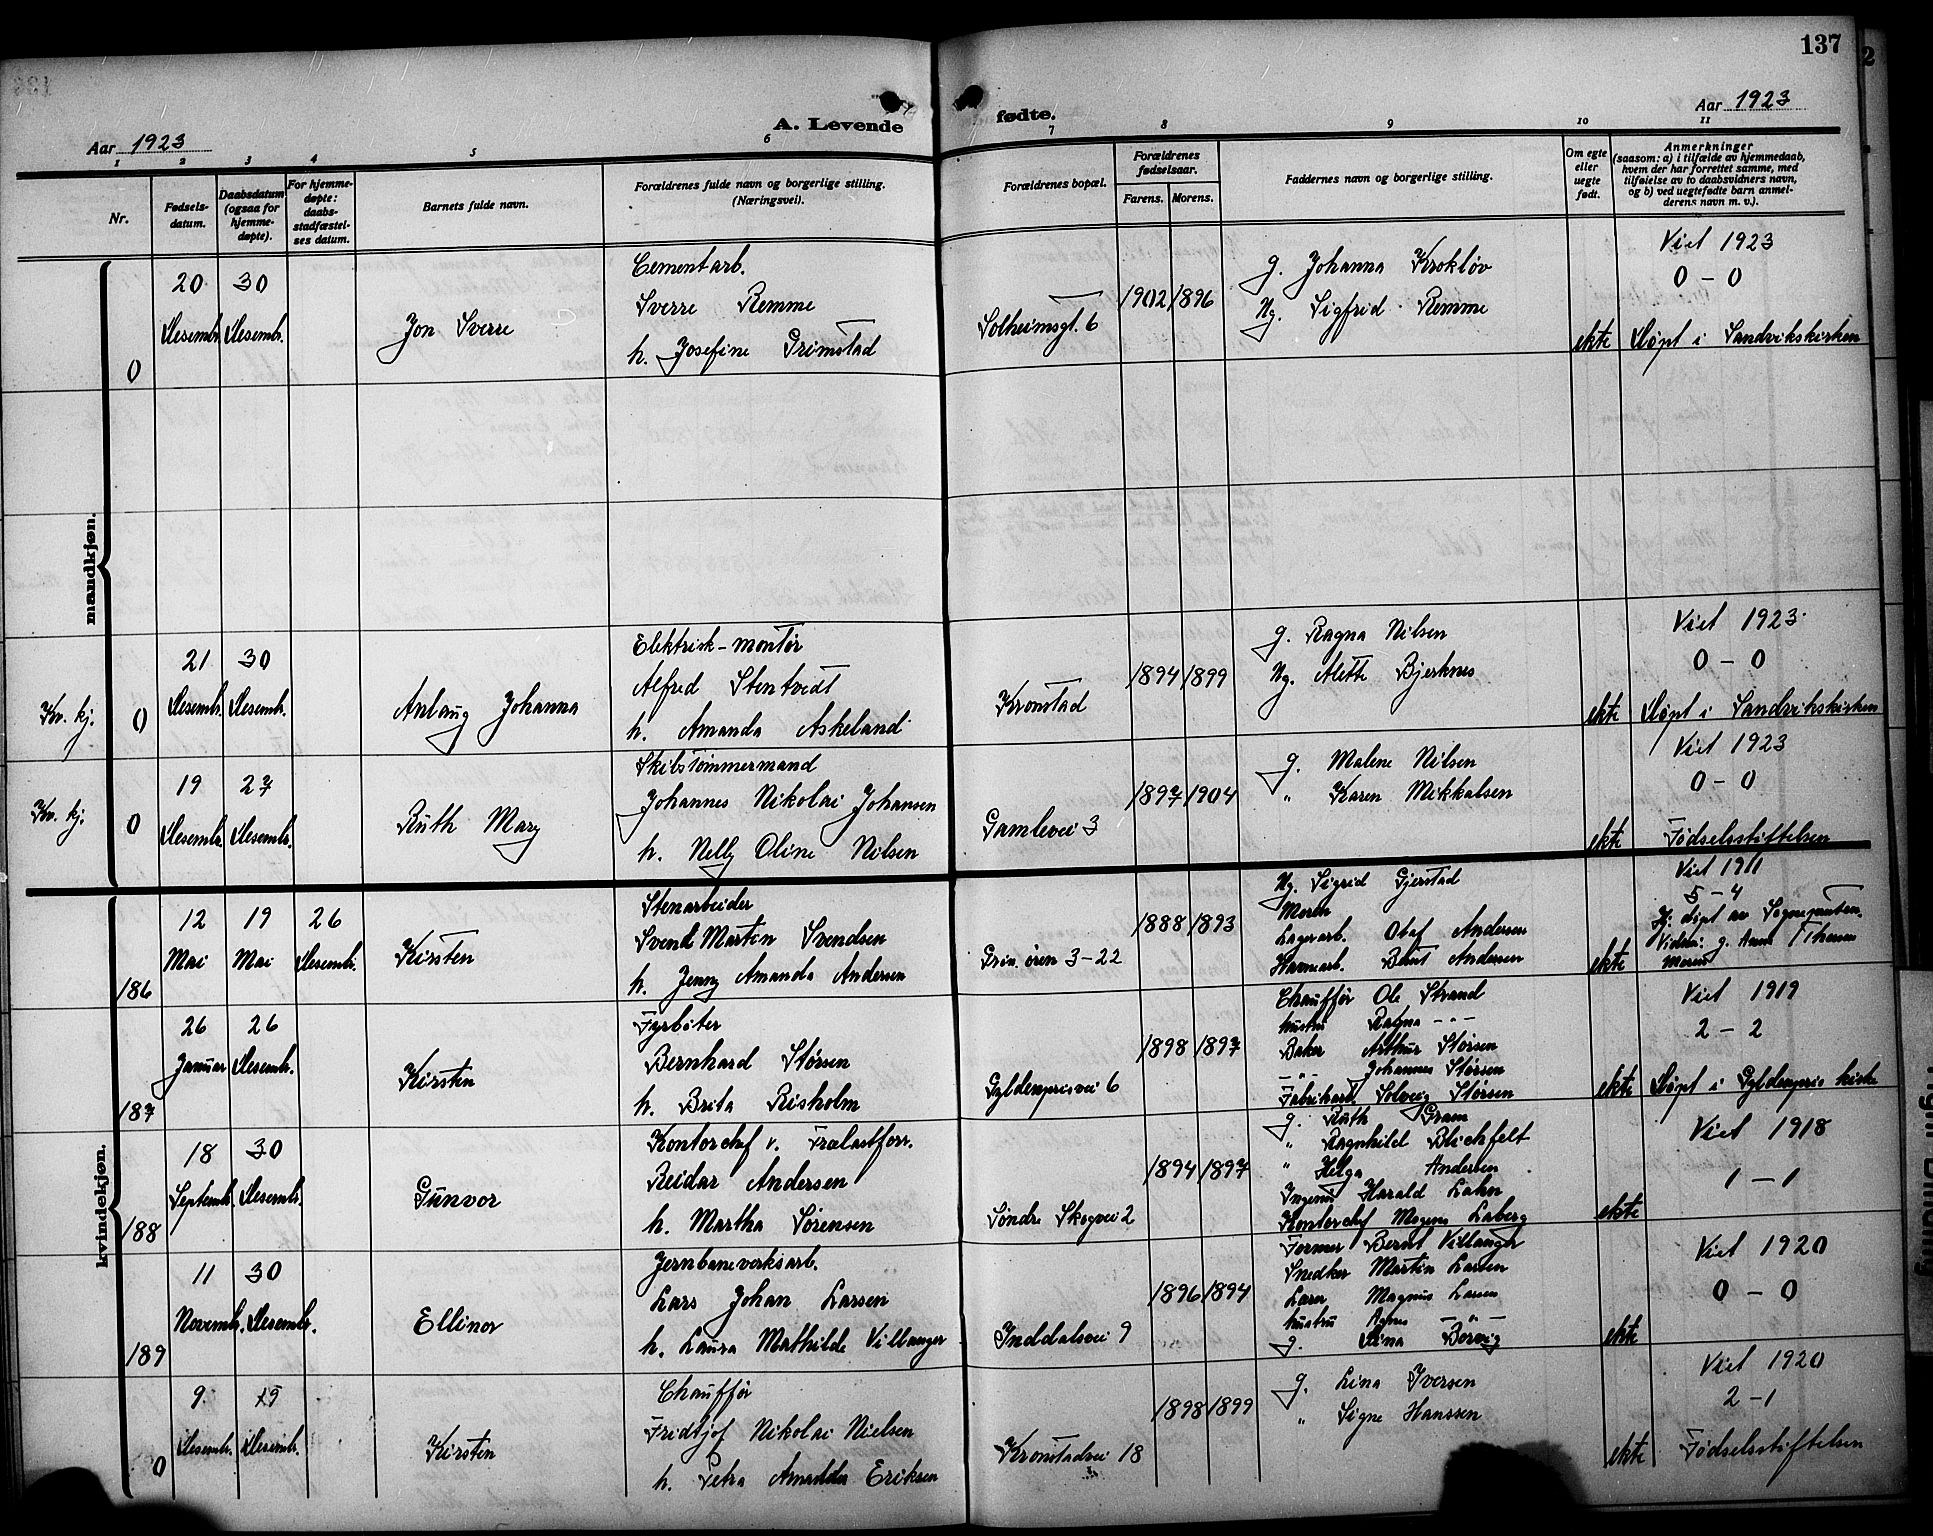 137
Aar 1923
A. Levende
fødte.
Aar 1923
1 2 3 4 5 6 7 8 9 10 11
Nr.
Fødsels-
datum.
Daabsdatum
(ogsaa for
hjemme-
døpte).
For hjemme-
døpte:
daabs-
stadfæstel-
ses datum.
Barnets fulde navn.
Forældrenes fulde navn og borgerlige stilling.
(Næringsvei).
Forældrenes bopæl.
Forældrenes
fødselsaar.
Farens. Morens.
Faddernes navn og borgerlige stilling.
Om egte
eller
uegte
født.
Anmerkninger
(saasom: a) i tilfælde av hjemmedaab,
hvem der har forrettet samme, med
tilføielse av to daabsvidners navn,
og b) ved uegtefødte barn anmel-
derens navn m. v.).
mandkjøn.
0
20 30
Desembr. Desembr.
Jon Sverre
Cementarb.
Sverre Remme
h. Josefine Grimstad
Solheimsgt. 6
1902 1896
g. Johanna Krokløv
Ug. Sigfrid Remme
ekte
Viet 1923
0 - 0
Døpt i Sandvikskirken
Kv. kj.
0
21 30
Desembr. Desembr.
Anlaug Johanna
Elektrisk-montør
Alfred Stentvedt
h. Amanda Askeland
Kronstad
1894 1899
g. Ragna Nilsen
Ug. Alette Bjerknes
ekte
Viet 1923
0 - 0
Døpt i Sandvikskirken
Kv. kj.
0
19 27
Desembr. Desembr.
Ruth Mary
Skibstømmermand
Johannes Nikolai Johansen
h. Nelly Oline Nilsen
Gamlevei 3
1897 1904
g. Malene Nilsen
" Karen Mikkalsen
ekte
Viet 1923
0 - 0
Fødselsstiftelsen
kvindekjøn.
186
12 19 26
Mai Mai Desembr.
Kirsten
Stenarbeider
Svend Martin Svendsen
h. Jenny Amanda Andersen
Grin. øren 3-22
1888 1893
Ug. Sigrid Gjerstad
Moren
Lagerarb. Olaf Andersen
Havnarb. Bernt Andersen
ekte
Viet 1911
5 - 4
Hj. døpt av Sognepresten.
Vidner: g. Anna Thomsen
Moren
187
26 26
Januar Desembr.
Kirsten
Fyrbøter
Bernhard Størsen
h. Brita Risholm
Gyldenprisvei 6
1898 1897
Chauffør Ole Strand
hustru Ragna - " -
Baker Arthur Størsen
- " - Johannes Størsen
Fabrikarb. Solveig Størsen
ekte
Viet 1919
2 - 2
Døpt i Gyldenpris kirke
188
18 30
Septembr. Desembr.
Gunvor
Kontorchef v. Frælastforr.
Reidar Andersen
h. Martha Sørensen
Søndre Skogvei 2
1894 1897
g. Ruth Gram
" Ragnhild Blichfelt
" Helga Andersen
Ingeniør Harald Lahn
Kontorchef Mogens Laberg
ekte
Viet 1918
1 - 1
189
11 30
Novembr. Desembr.
Ellinor
Jernbaneverksarb.
Lars Johan Larsen
h. Laura Mathilde Villanger
Inddalsvei 9
1896 1894
Former Bernt Villanger
Snedker Martin Larsen
Lærer Magnus Larsen
hustru Agnes - " -
g. Lina Borvig
ekte
Viet 1920
0 - 0
0
9. 15
Desembr. Desembr.
Kirsten
Chauffør
Fridtjof Nikolai Nielsen
h. Petra Amadda Eriksen
Kronstadvei 18
1898 1899
g. Lina Iversen
" Signe Hanssen
ekte
Viet 1920
2 - 1
Fødselsstiftelsen